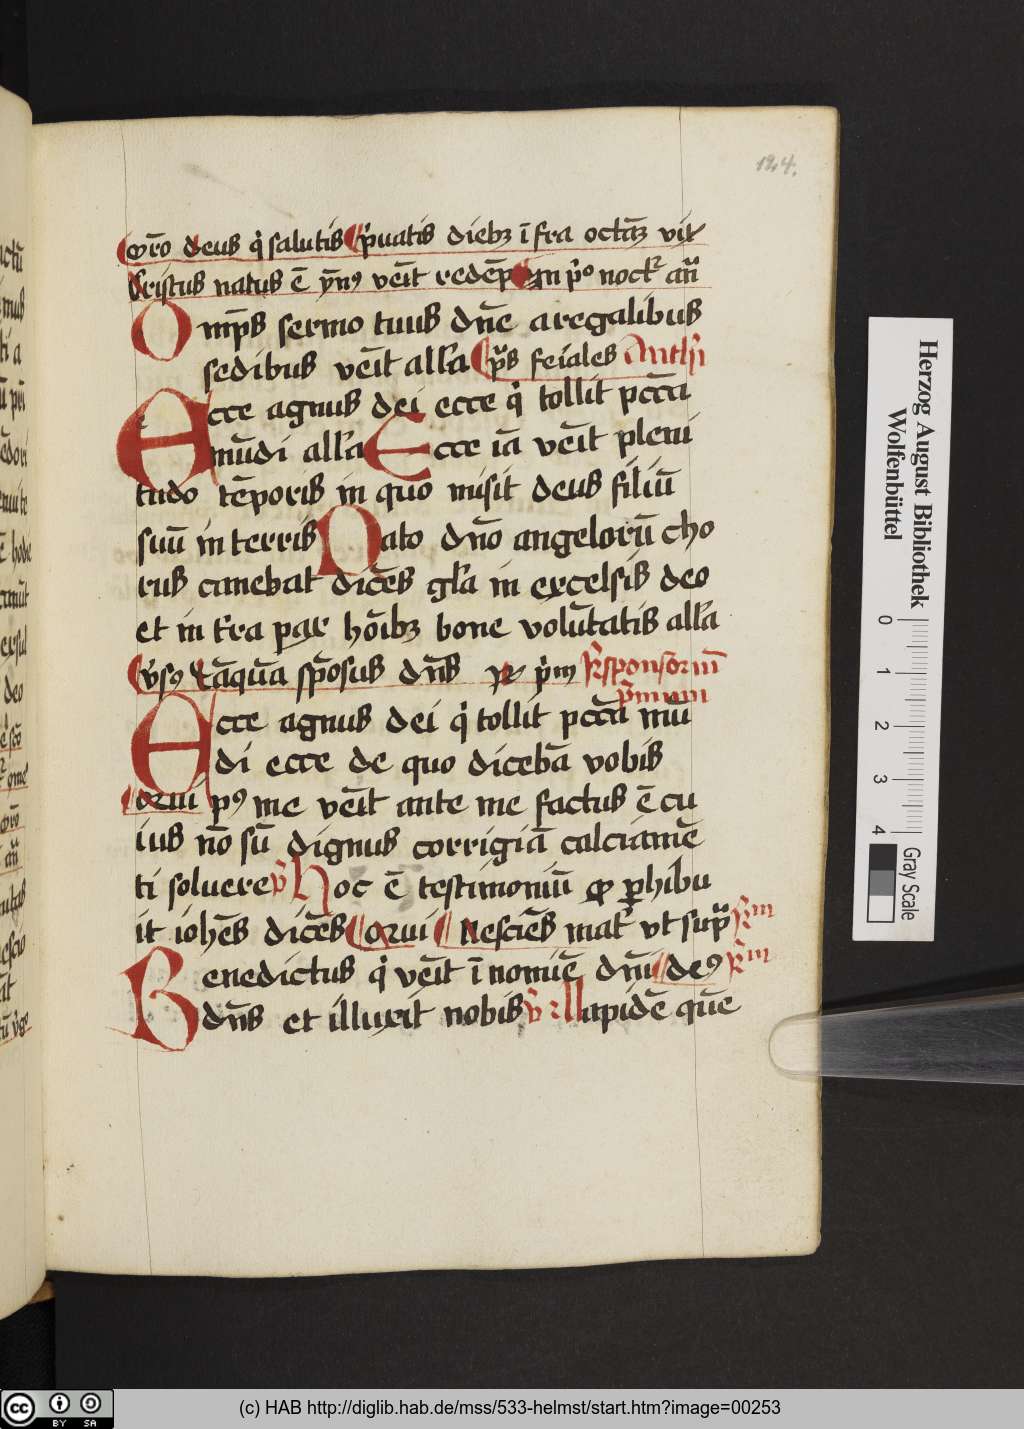 124.
Or̄o deus q̇ salutis ṗuatis diebꝫ ī fra octāꝫ vix
Cristus natus ē ẏn9 vēit redēp In p̄o noctꝛ̄ an̄
Omp̄s sermo tuus dn̄e aregalibus
sedibus vēit all'a p̄s feiales Antī
Ecce agnus dei ecce q̇ tollit pcc̄a
mūdi all'a Ecce iā vēit pleni
tudo tēporis in quo misit deus filiū
suū in terris Nato dn̄o angelorū cho
rus canebat dicēs gl'a in excelsis deo
et in t'ra pax hoībꝫ bone volūtatis all'a
v̇s9 tāquā sp̄osus dn̄s p̄m Rsponsoriū
p̄mum
Ecce agnus dei q̇ tollit pcc̄a mū
di ecce de quo dicebā vobis
Qui p9 me vēit ante me factus ē cu
ius nō sū dignus corrigiā calciamē
ti soluere v̄ Hoc ē testimoniū ꝙ ꝑhibu
it iohēs dicēs Qui Nesciēs mat' vt sup̄ Rm
Benedictus q̇ vēit ī nomīe dn̄i de9 Rm
dn̄s et illuxit nobis v̄ Lapidē quē
Herzog August Bibliothek
Wolfenbüttel
0 1 2 3 4
Gray Scale
cc BY SA
(c) HAB http://diglib.hab.de/mss/533-helmst/start.htm?image=00253